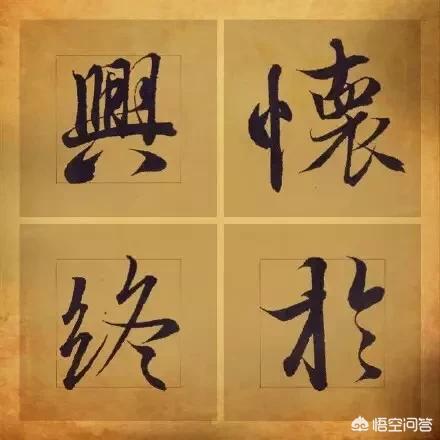 興懷
終於
悟空问答